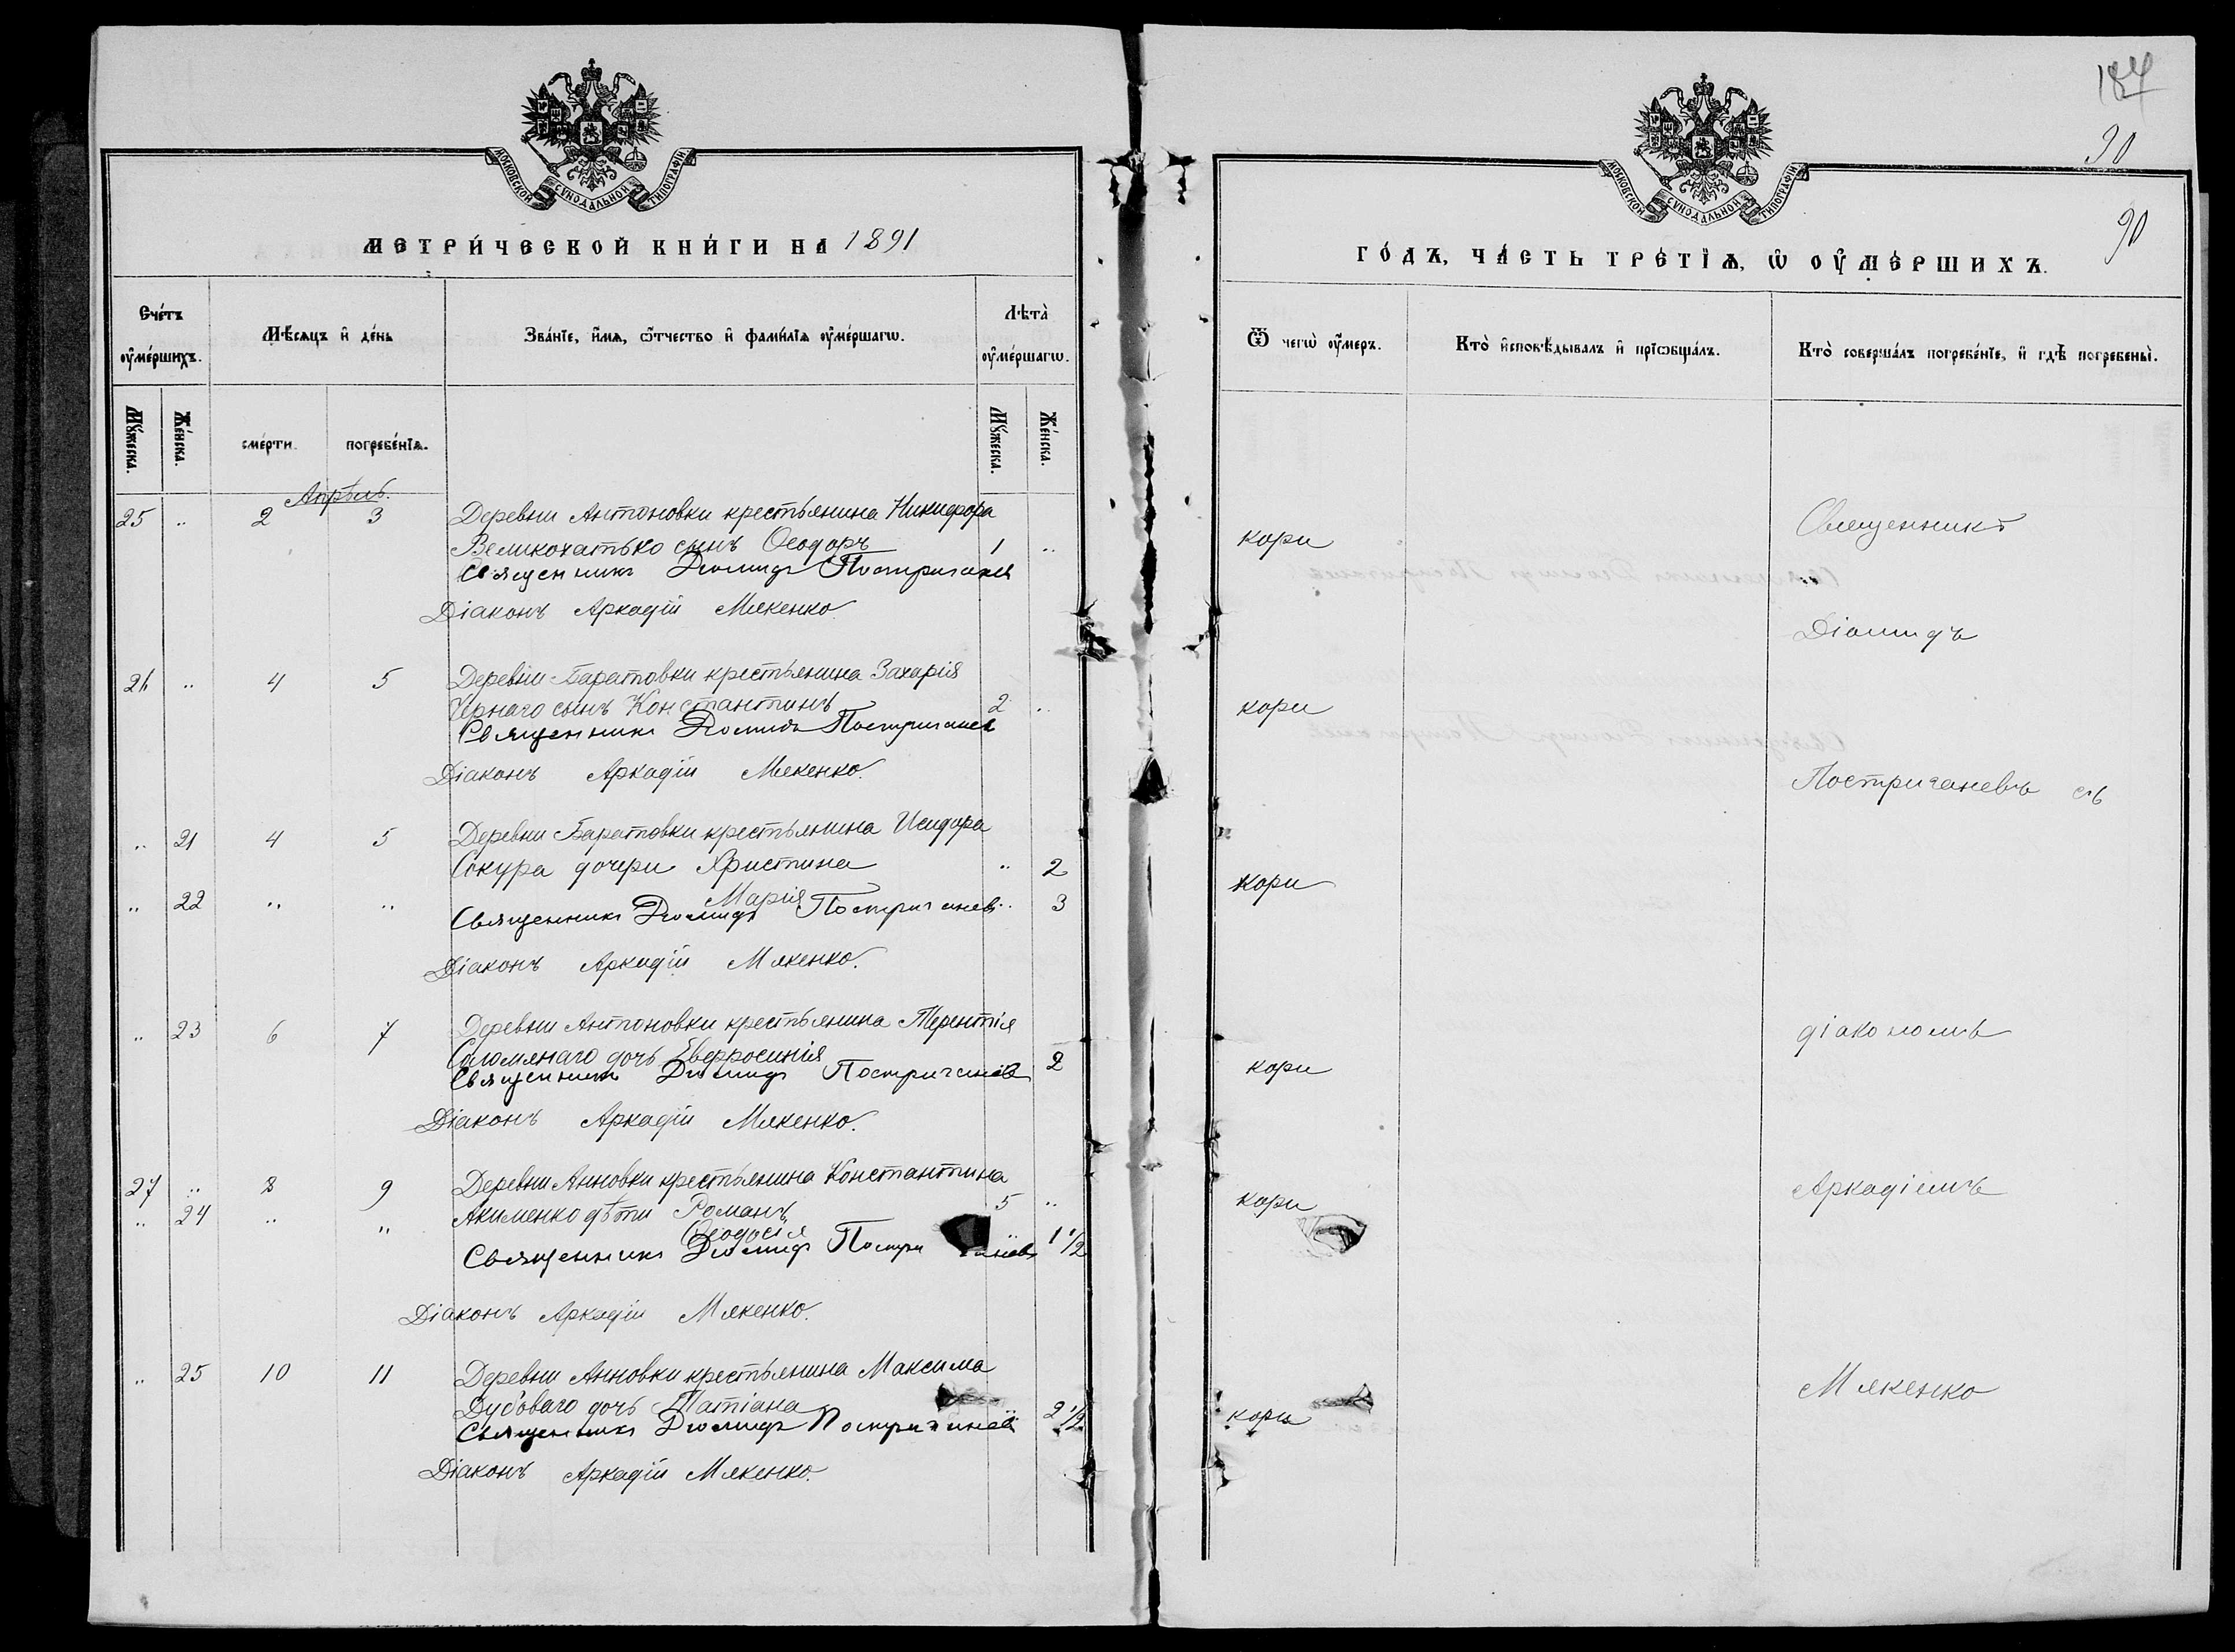 МОСКОВСКОЙ СѴНОДАЛЬНОЙ ТИПОГРАФІИ
МЕТРИ́ЧЕСКОЙ КНИ́ГИ НА 1891
Сче́тъ ᲂу҆ме́ршихъ.
Мѣ́сяцъ и҆ де́нь
Зва́нїе, и҆́мѧ, ѻ҆́тчество и҆ фами́лїѧ ᲂу҆ме́ршагѡ.
Лѣта̀ ᲂу҆ме́ршагѡ.
Мꙋ́жеска.
Же́нска.
сме́рти.
погребе́нїѧ.
Мꙋ́жеска.
Же́нска.
Апрѣль.
25 " 2 3 Деревни Антоновки крестьянина Никифора
Великохатько сынъ Ѳеодоръ 1 "
Священникъ Диомидъ Постриганевъ
Діаконъ Аркадій Мякенко.
26 " 4 5 Деревни Баратовки крестьянина Захарія
Чернаго сынъ Константинъ 2 "
Священникъ Диомидъ Постриганевъ
Діаконъ Аркадій Мякенко.
" 21 4 5 Деревни Баратовки крестьянина Исидора
Сокура дочери Христина " 2
" 22 " " Марія " 3
Священникъ Диомидъ Постриганевъ
Діаконъ Аркадій Мякенко.
" 23 6 7 Деревни Антоновки крестьянина Терентія
Соломянаго дочь Евфросинія 2
Священникъ Диомидъ Постриганевъ
Діаконъ Аркадій Мякенко.
27 " 8 9 Деревни Анновки крестьянина Константина
" 24 " " Акименко дѣти Романъ 5 "
Ѳеодосія " 1 1/2
Священникъ Диомидъ Постри аневъ
Діаконъ Аркадій Мякенко.
" 25 10 11 Деревни Анновки крестьянина Максима
Дубоваго дочь Татіана " 2 1/2
Священникъ Диомидъ Постриганевъ
Діаконъ Аркадій Мякенко.
187
90
90
МОСКОВСКОЙ СѴНОДАЛЬНОЙ ТИПОГРАФІИ
ГО́ДЪ, ЧА́СТЬ ТРЕ́ТЇѦ, Ѡ ОУ҆МЕ́РШИХЪ.
Ѿ чегѡ̀ ᲂу҆́меръ.
Кто̀ и҆сповѣ́дывалъ и҆ прїѡбща́лъ.
Кто̀ соверша́лъ погребе́нїе, и҆ гдѣ̀ погребены̀.
кори
Священникъ
Діомидъ
кори
Постриганевъ съ
кори
діакономъ
кори
Аркадіемъ
кори
Мякенко
кори